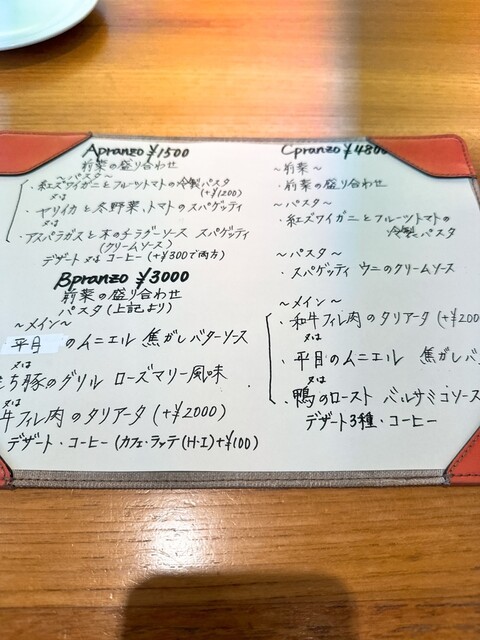 Apranzo ¥1500
前菜の盛り合わせ
～パスタ～
・紅ズワイガニとフルーツトマトの冷製パスタ
又は (+¥1200)
・ヤリイカと冬野菜、トマトのスパゲッティ
又は
・アスパラガスと木のチラグーソース スパゲッティ
(クリームソース)
デザート 又は コーヒー (+¥300で両方)
Bpranzo ¥3000
前菜の盛り合わせ
パスタ (上記より)
～メイン～
平目 のムニエル 焦がしバターソース
又は
もち豚のグリル ローズマリー風味
又は
牛フィレ肉のタリアータ (+¥2000)
デザート・コーヒー (カフェ・ラッテ(H・I)+¥100)
Cpranzo ¥4800
～前菜～
・前菜の盛り合わせ
～パスタ～
・紅ズワイガニとフルーツトマトの
冷製パスタ
～パスタ～
・スパゲッティ ウニのクリームソース
～メイン～
・和牛フィレ肉のタリアータ (+¥200
又は
・平目のムニエル 焦がしバ
又は
・鴨のロースト バルサミコソース
デザート3種・コーヒー